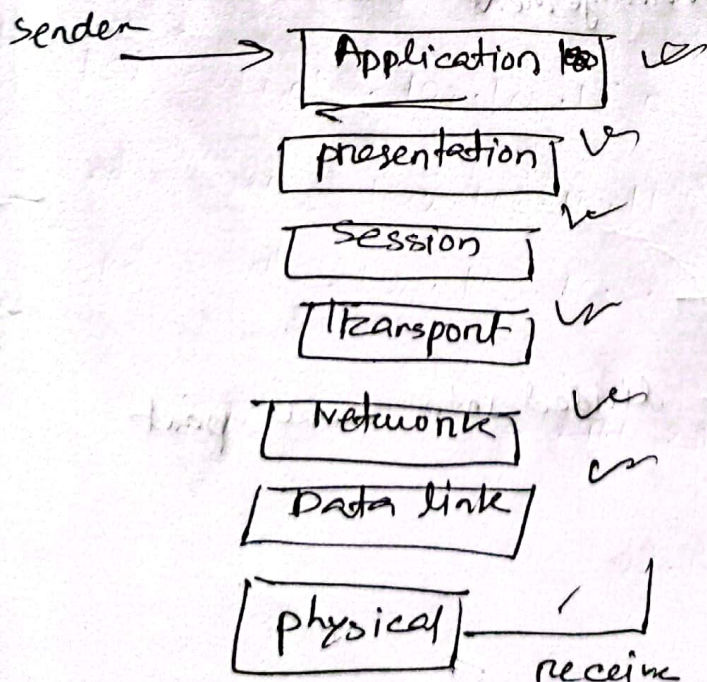 sender
Application
presentation
Session
Transport
Network
Data link
physical
receive